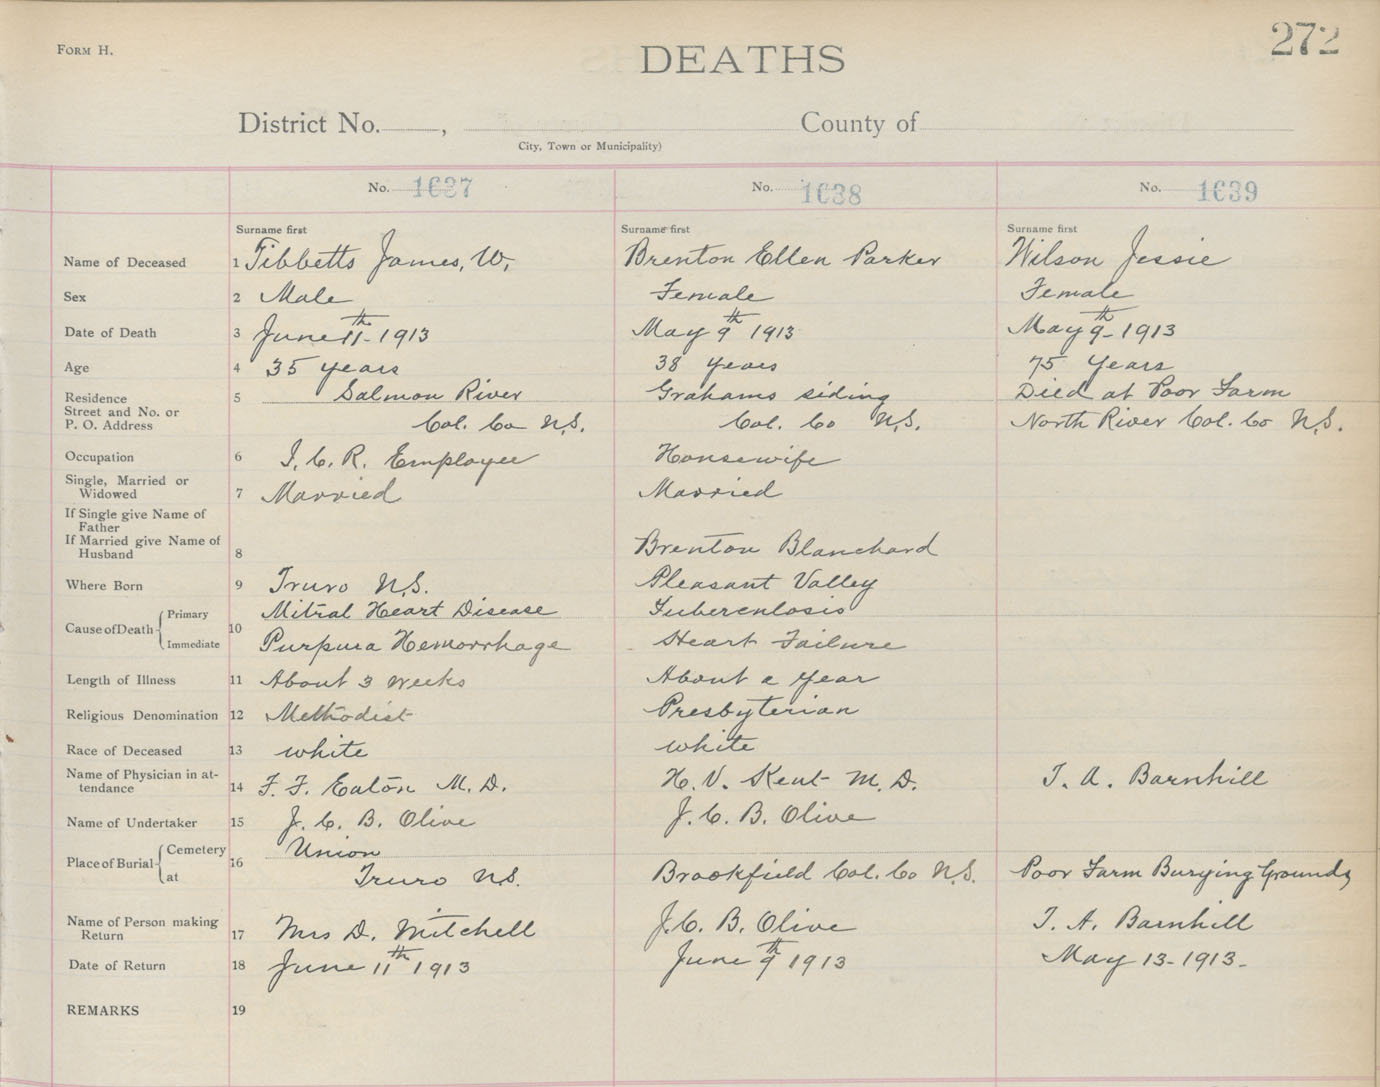 272
Form H.
DEATHS
District No. , County of
City, Town or Municipality)
No. 1637 No. 1638 No. 1639
Surname first Surname first Surname first
Name of Deceased 1 Tibbetts James, W. Brenton Ellen Parker Wilson Jessie
Sex 2 Male Female Female
Date of Death 3 June 11th 1913 May 9th 1913 May 9th 1913
Age 4 35 years 38 years 75 years
Residence 5 Salmon River Grahams siding Died at Poor Farm
Street and No. or
P. O. Address Col. Co N.S. Col. Co N.S. North River Col. Co N.S.
Occupation 6 I. C. R. Employee Housewife
Single, Married or
Widowed 7 Married Married
If Single give Name of
Father
If Married give Name of
Husband 8 Brenton Blanchard
Where Born 9 Truro N.S. Pleasant Valley
Cause of Death 10 Primary Mitral Heart Disease Tuberculosis
Immediate Purpura Hemorrhage Heart Failure
Length of Illness 11 About 3 weeks About a year
Religious Denomination 12 Methodist Presbyterian
Race of Deceased 13 white white
Name of Physician in at-
tendance 14 F. F. Eaton M. D. H. V. Kent M. D. T. A. Barnhill
Name of Undertaker 15 J. C. B. Olive J. C. B. Olive
Place of Burial 16 Cemetery Union
at Truro N.S. Brookfield Col. Co N.S. Poor Farm Burying Grounds
Name of Person making
Return 17 Mrs D. Mitchell J. C. B. Olive T. A. Barnhill
Date of Return 18 June 11th 1913 June 9th 1913 May 13-1913-
REMARKS 19